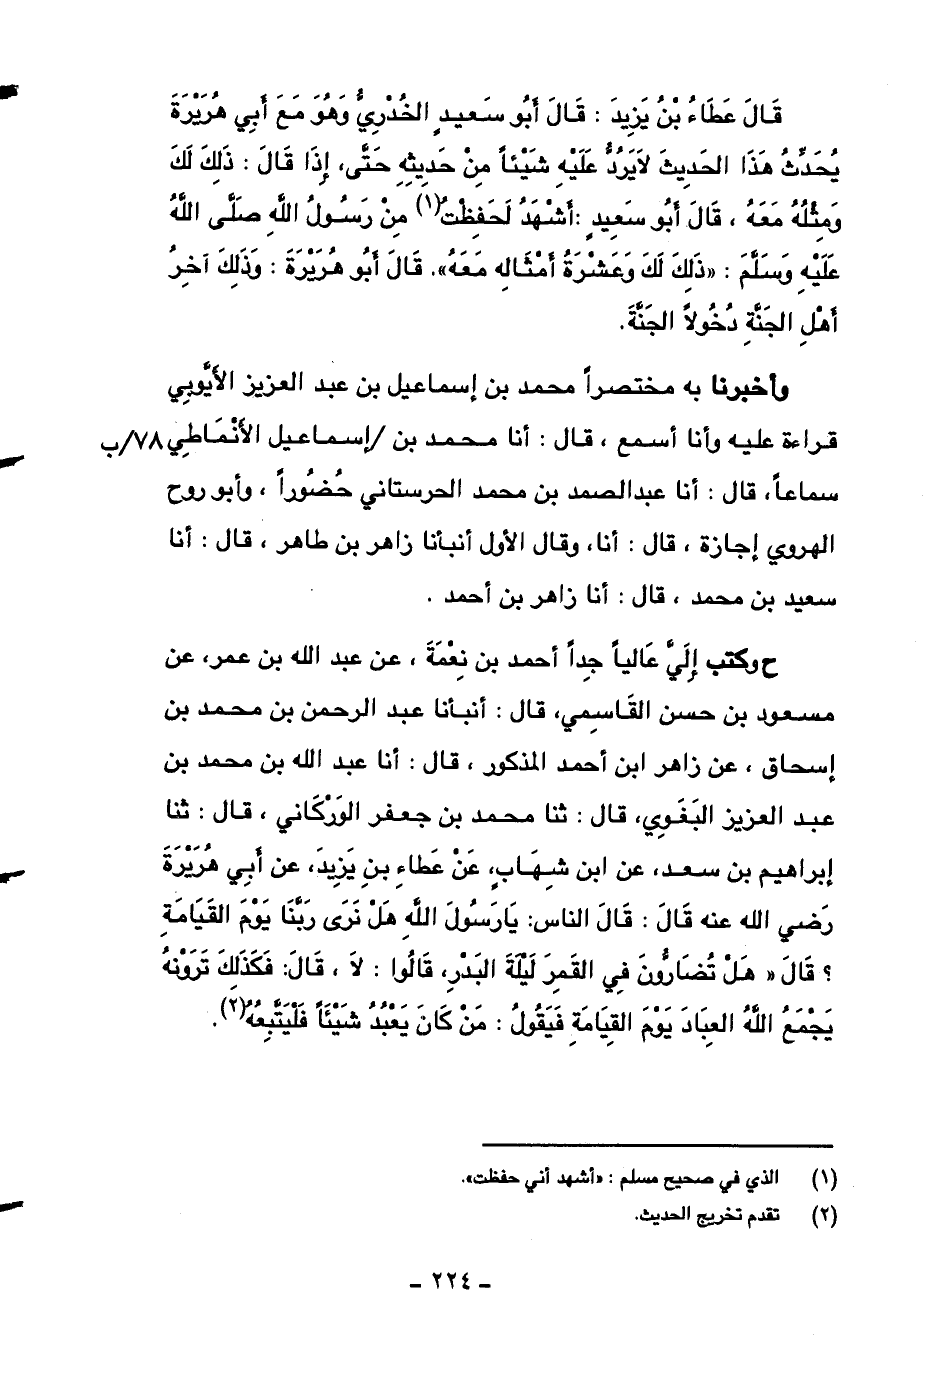 قَالَ عَطَاءُ بْنُ يَزِيدَ : قَالَ أَبُو سَعِيدٍ الخُدْرِيُّ وَهُوَ مَعَ أَبِي هُرَيْرَةَ
يُحَدِّثُ هَذَا الحَدِيثَ لاَيَرُدُّ عَلَيْهِ شَيْئاً مِنْ حَدِيثِهِ حَتَّى، إِذَا قَالَ : ذَلِكَ لَكَ
وَمِثْلُهُ مَعَهُ ، قَالَ أَبُو سَعِيدٍ :أَشْهَدُ لَحَفِظْتُ(١) مِنْ رَسُولُ اللَّهِ صَلَّى اللَّهُ
عَلَيْهِ وَسَلَّمَ : «ذَلِكَ لَكَ وَعَشْرَةُ أَمْثَالِهِ مَعَهُ». قَالَ أَبُو هُرَيْرَةَ : وَذَلِكَ آخِرُ
أَهْلِ الجَنَّةِ دُخُولاً الجَنَّةَ.
وأخبرنا به مختصراً محمد بن إسماعيل بن عبد العزيز الأيُّوبي
قراءة عليه وأنا أسمع ، قال : أنا محمد بن /إسماعيل الأَنْمَاطي ٧٨/ب
سماعاً، قال : أنا عبدالصمد بن محمد الحرستاني حُضُوراً ، وأبو روح
الهروي إجازة ، قال : أنا، وقال الأول أنبأنا زاهر بن طاهر ، قال : أنا
سعيد بن محمد ، قال : أنا زاهر بن أحمد .
ح وكتب إِلَيَّ عَالياً جِداً أحمد بن نِعْمَةَ ، عن عبد الله بن عمر، عن
مسعود بن حسن القَاسمي، قال : أنبأنا عبد الرحمن بن محمد بن
إسحاق ، عن زاهر ابن أحمد المذكور ، قال : أنا عبد الله بن محمد بن
عبد العزيز البَغَوي، قال : ثنا محمد بن جعفر الوَرْكَاني ، قال : ثنا
إبراهيم بن سعد، عن ابن شِهَابٍ، عَنْ عَطَاءِ بنِ يَزِيدَ، عن أَبِي هُرَيْرَةَ
رَضي الله عنه قَالَ : قَالَ الناس: يَارَسُولَ اللَّهِ هَلْ نَرَى رَبَّنَا يَوْمَ القَيَامَةِ
؟ قَالَ « هَلْ تُضَارُّونَ فِي القَمَرِ لَيْلَةَ البَدْرِ، قَالُوا : لاَ ، قَالَ: فَكَذَلِكَ تَرَوْنَهُ
يَجْمَعُ اللَّهُ العِبَادَ يَوْمَ القِيَامَةِ فَيَقُولُ : مَنْ كَانَ يَعْبُدُ شَيْئاً فَلْيَتَّبِعْهُ(٢).
(١) الذي في صحيح مسلم : «أشهد أني حفظت».
(٢) تقدم تخريج الحديث.
- ٢٢٤ -